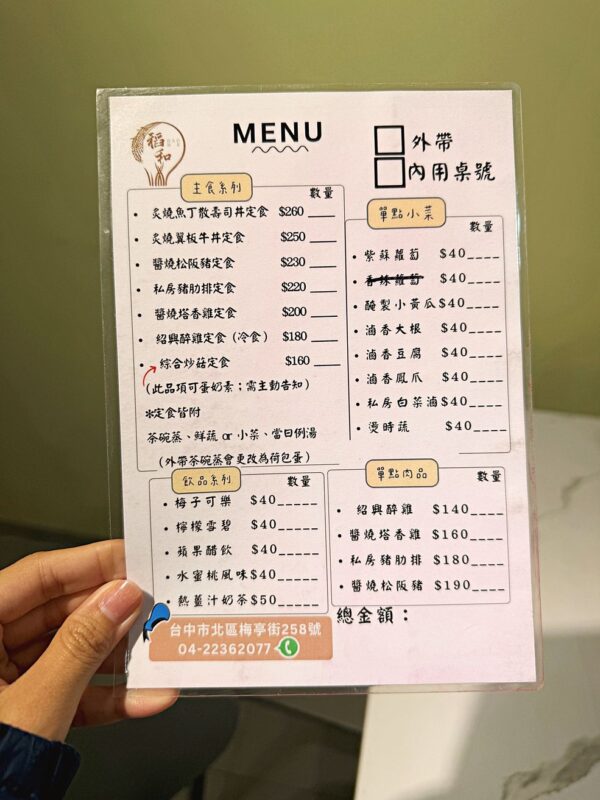 稻和
MENU
外帶
內用桌號
主食系列
數量
炙燒魚丁散壽司丼定食 $260
炙燒翼板牛丼定食 $250
醬燒松阪豬定食 $230
私房豬肋排定食 $220
醬燒塔香雞定食 $200
紹興醉雞定食(冷食) $180
綜合炒菇定食 $160
(此品項可蛋奶素;需主動告知)
*定食皆附
茶碗蒸、鮮蔬 or 小菜、當日例湯
(外帶茶碗蒸會更改為荷包蛋)
單點小菜
數量
紫蘇蘿蔔 $40____
香辣蘿蔔 $40____
醃製小黃瓜$40____
滷香大根 $40____
滷香豆腐 $40____
滷香鳳爪 $40____
私房白菜滷$40____
燙時蔬 $40____
飲品系列
數量
梅子可樂 $40_____
檸檬雪碧 $40_____
蘋果醋飲 $40_____
水蜜桃風味$40_____
熱薑汁奶茶$50_____
單點肉品
數量
紹興醉雞 $140____
醬燒塔香雞 $160____
私房豬肋排 $180____
醬燒松阪豬 $190____
總金額:
台中市北區梅亭街258號
04-22362077